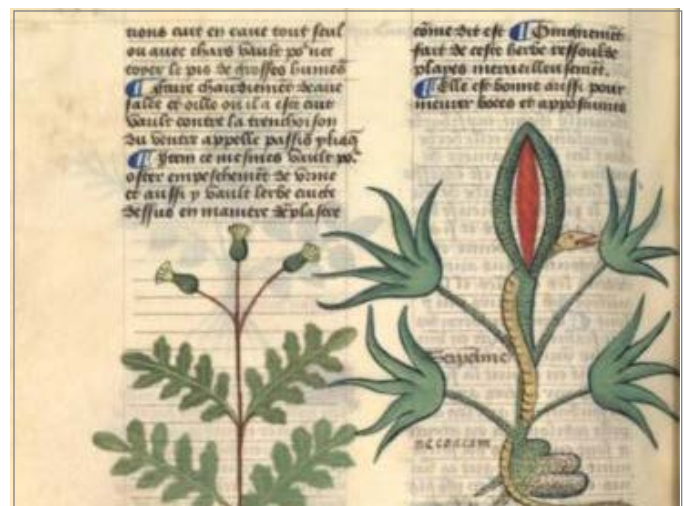 cuit en eaue tout seul
ou avec chars vault po' net
toyer le pis de grosses humes
¶ chaudement deaue
salee et oille ou il a este cuit
vault contre la trenchoison
du ventre appelle passio yliaq
¶ Item ce mesmes vault po'
oster empeschemēt de urine
et aussi y vault lerbe cuite
dessus en maniere de plastre
cōme dit est ¶
fait de ceste herbe ressoulde
playes merveilleusement.
¶ Elle est bonne aussi pour
meurer boces et appostumes